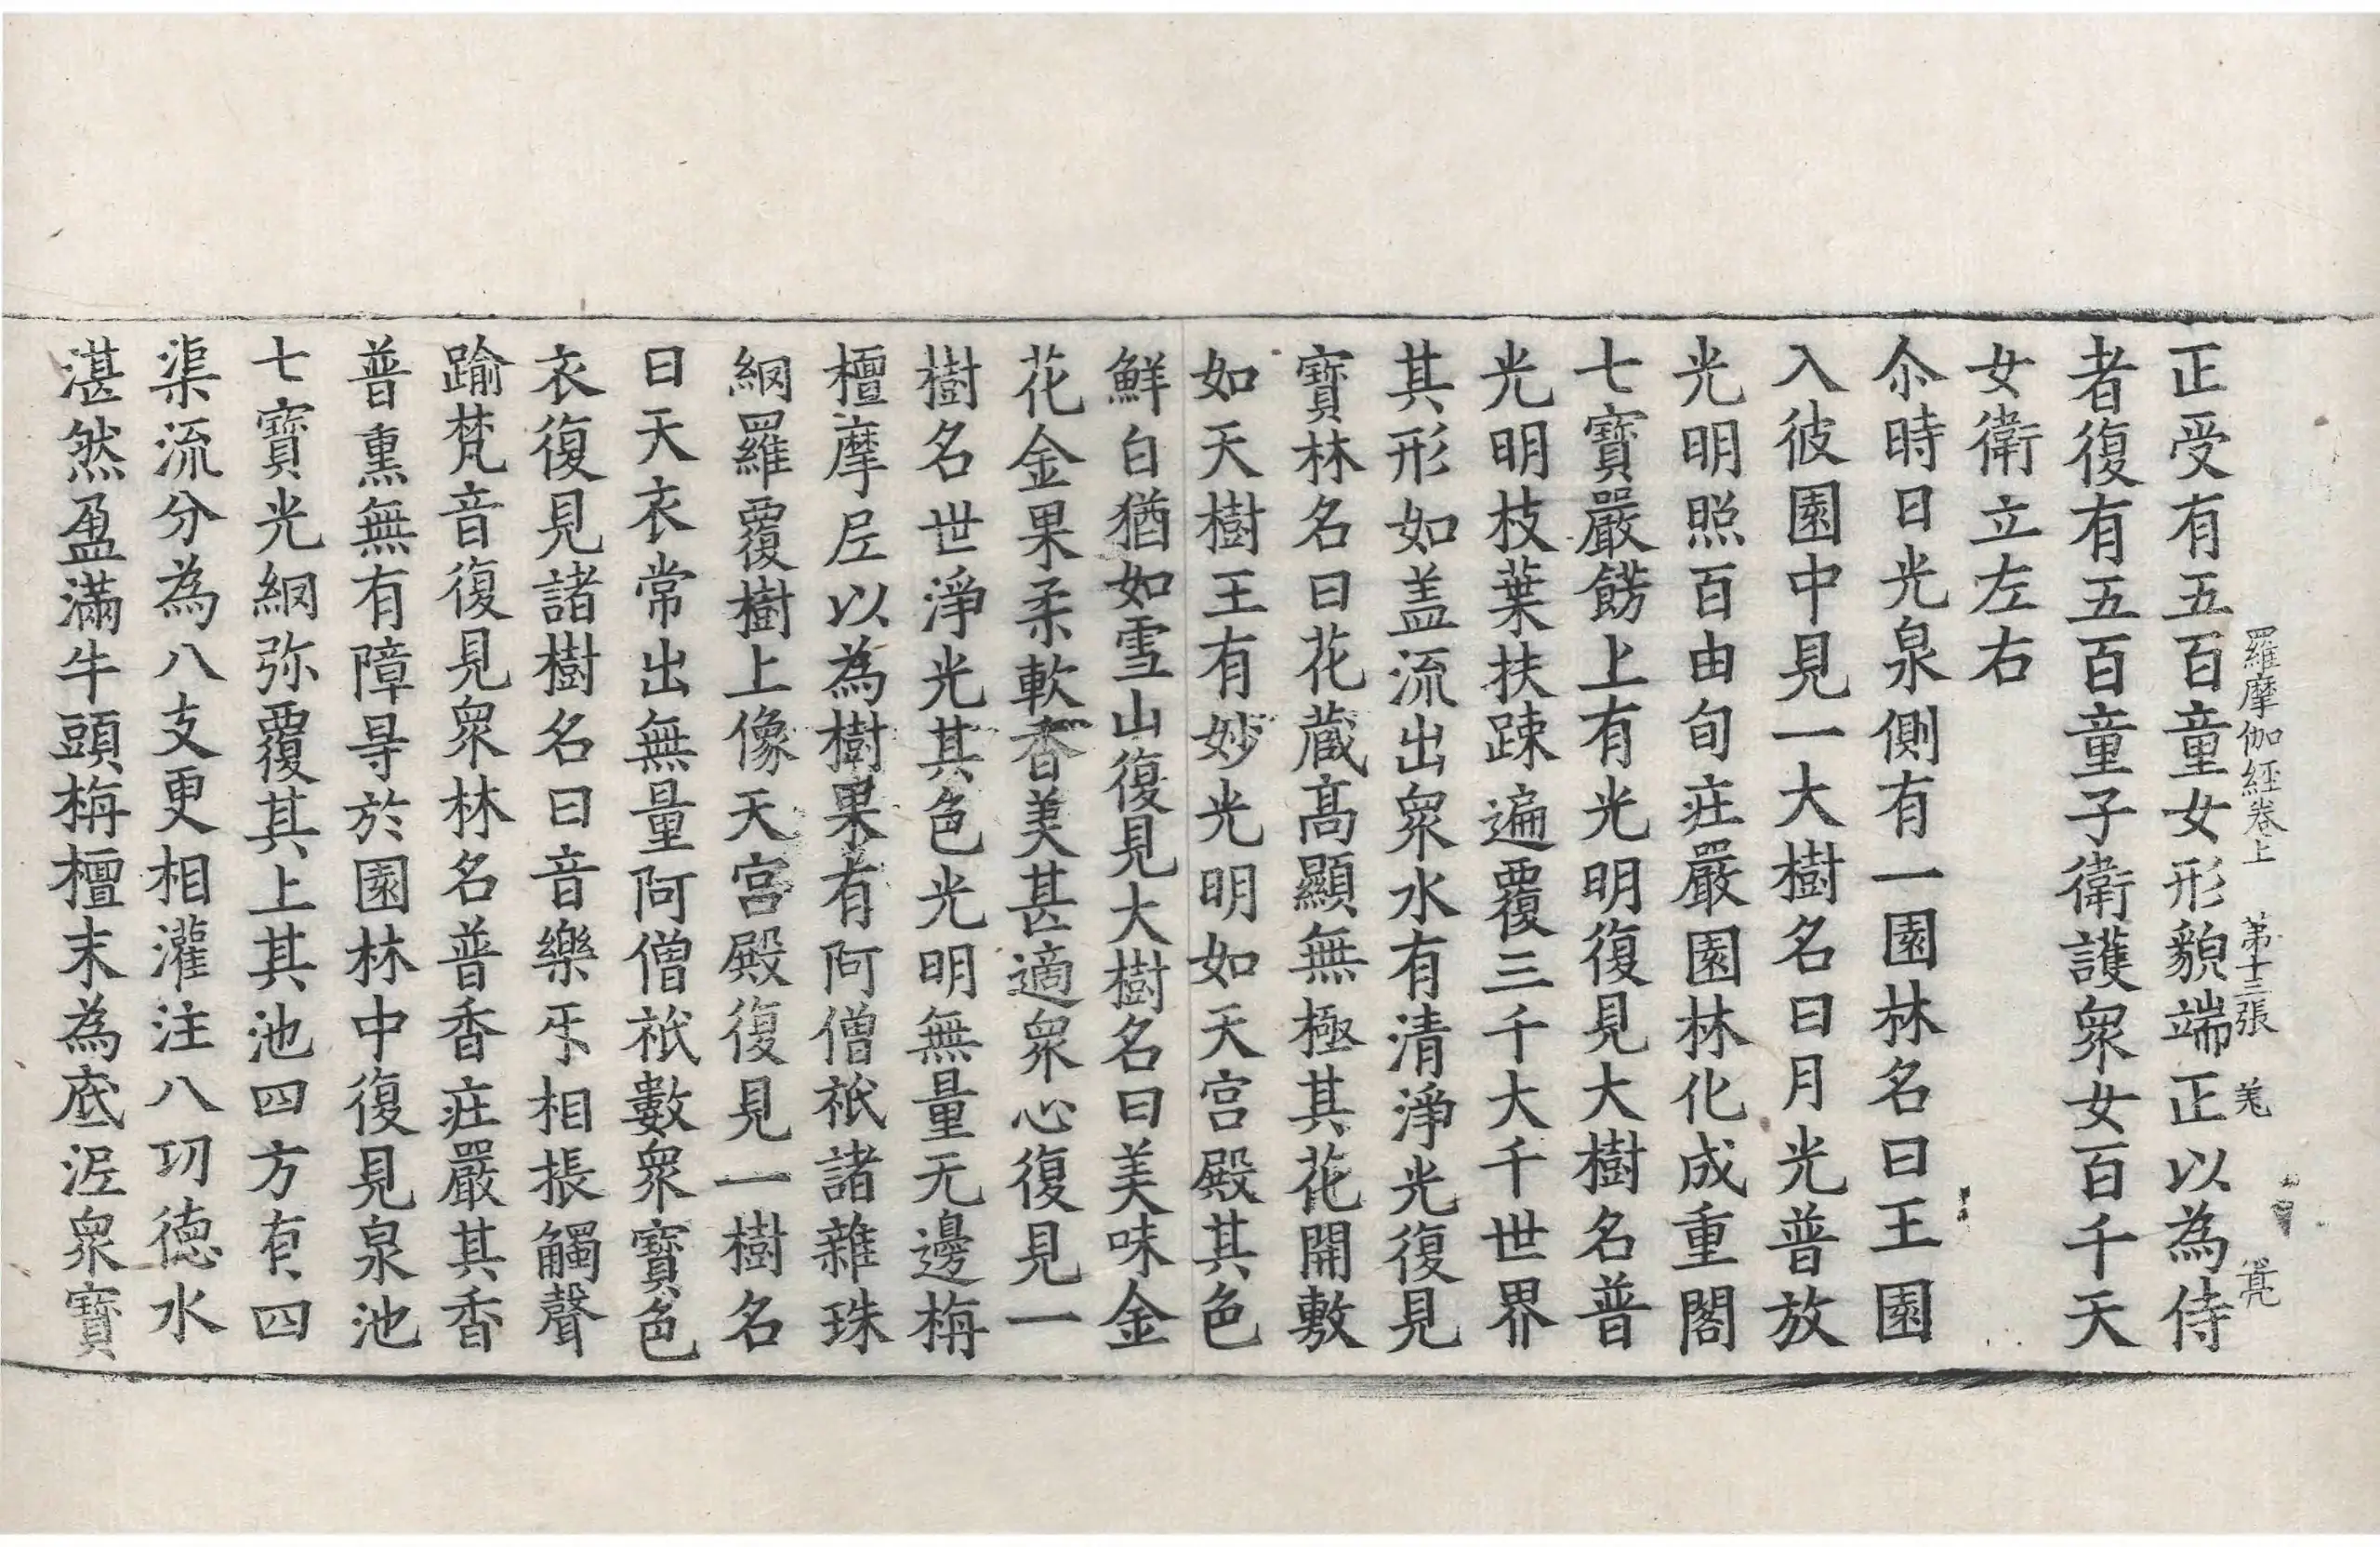 羅摩伽經卷上 第十三張 羗
正受有五百童女形貌端正以為侍
者復有五百童子衛護衆女百千天
女衛立左右
尒時日光泉側有一園林名曰王園
入彼園中見一大樹名曰月光普放
光明照百由旬莊嚴園林化成重閣
七寶嚴餝上有光明復見大樹名普
光明枝葉扶踈遍覆三千大千世界
其形如盖流出衆水有清淨光復見
寶林名曰花蔵髙顯無極其花開敷
如天樹王有妙光明如天宫殿其色
鮮白猶如雪山復見大樹名曰美味金
花金果柔軟香美甚適衆心復見一
樹名世淨光其色光明無量无邊栴
檀摩尼以為樹果有阿僧祇諸雜珠
網羅覆樹上像天宫殿復見一樹名
曰天衣常出無量阿僧祇數衆寶色
衣復見諸樹名曰音樂㸦相振觸聲
踰梵音復見衆林名普香莊嚴其香
普熏無有障㝵於園林中復見泉池
七寶光網弥覆其上其池四方有四
渠流分為八支更相灌注八功德水
湛然盈滿牛頭栴檀末為底泥衆寶